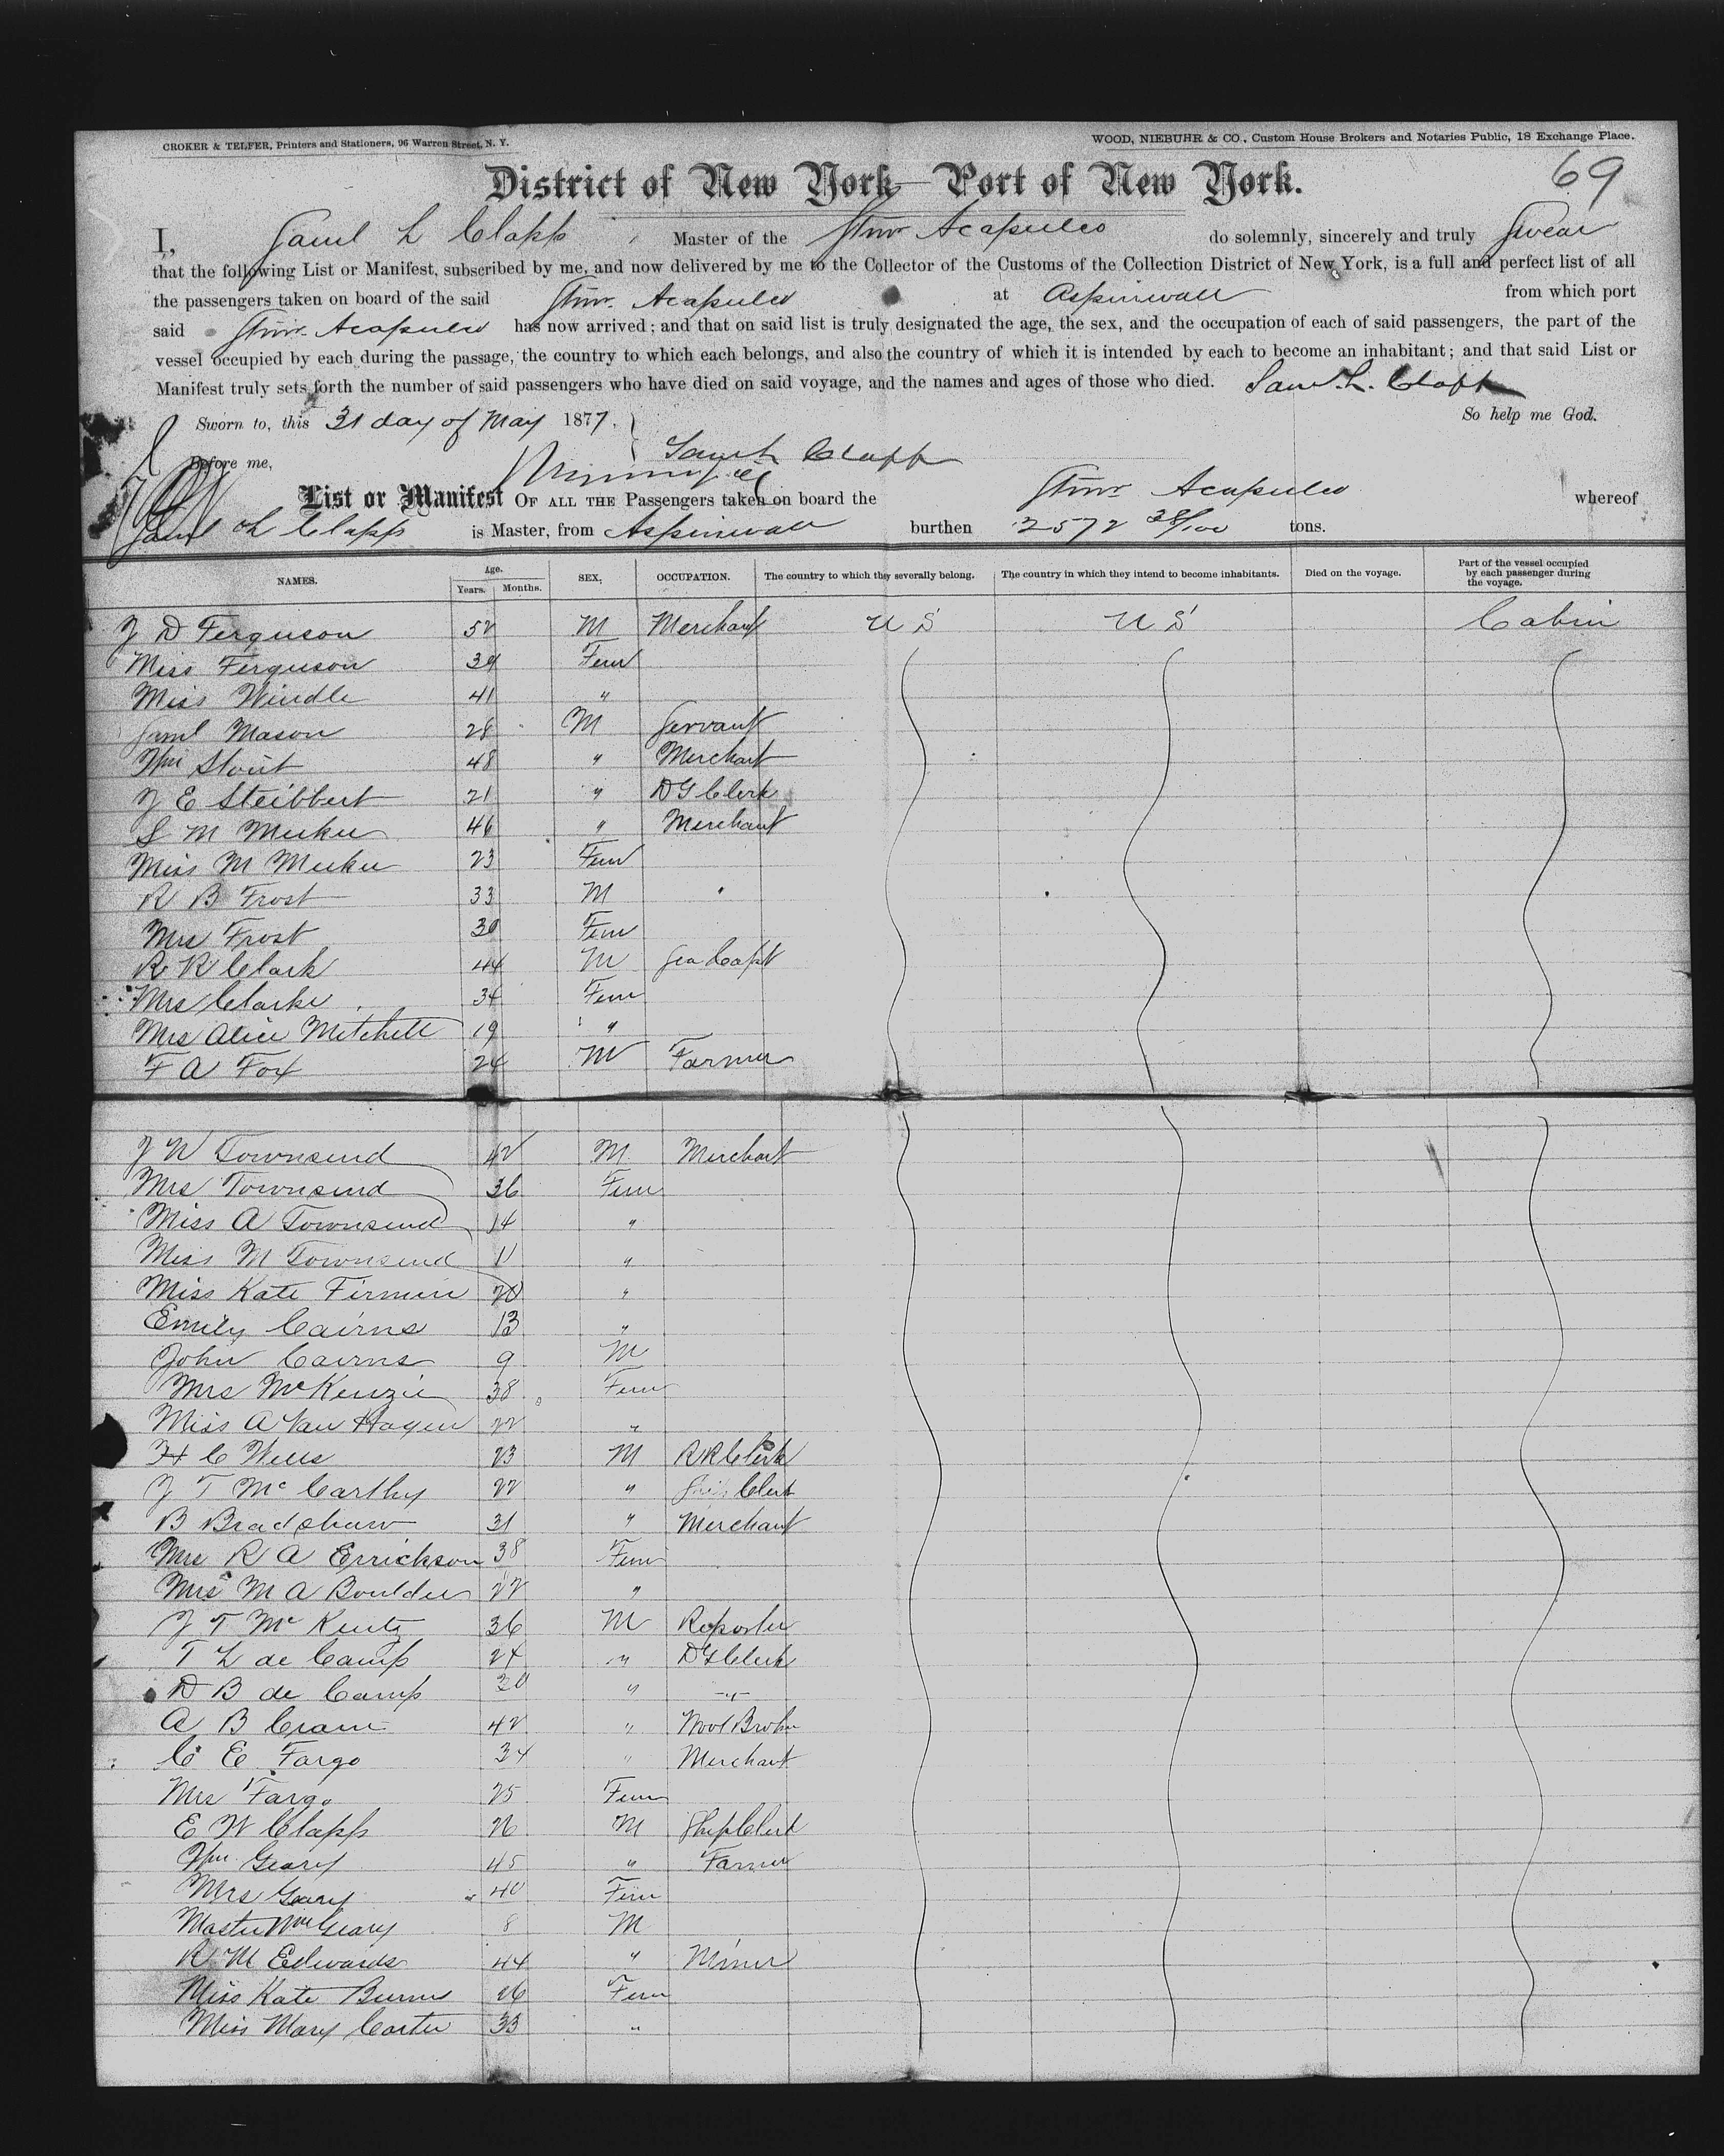 CROKER & TELFER, Printers and Stationers, 96 Warren Street, N. Y.
WOOD, NIEBUHR & CO., Custom House Brokers and Notaries Public, 18 Exchange Place.
69
District of New York—Port of New York.
I, Saml L Clapp Master of the Stmr Acapulco do solemnly, sincerely and truly Swear
that the following List or Manifest, subscribed by me, and now delivered by me to the Collector of the Customs of the Collection District of New York, is a full and perfect list of all
the passengers taken on board of the said Stmr. Acapulco at Aspinwall from which port
said Stmr. Acapulco has now arrived; and that on said list is truly designated the age, the sex, and the occupation of each of said passengers, the part of the
vessel occupied by each during the passage, the country to which each belongs, and also the country of which it is intended by each to become an inhabitant; and that said List or
Manifest truly sets forth the number of said passengers who have died on said voyage, and the names and ages of those who died. Saml. L. Clapp
Sworn to, this 31 day of May 1877. So help me God.
Before me, Saml L Clapp
List or Manifest OF ALL THE Passengers taken on board the Stmr Acapulco whereof
Saml L Clapp is Master, from Aspinwall burthen 2572 38/100 tons.
NAMES. Age. Years. Months. SEX. OCCUPATION. The country to which they severally belong. The country in which they intend to become inhabitants. Died on the voyage. Part of the vessel occupied by each passenger during the voyage.
J D Ferguson 52 M Merchant U S U S Cabin
Miss Ferguson 39 Fem
Miss Windle 41 "
Saml Mason 28 M Servant
Wm Stout 48 " Merchant
J E Steibbert 21 " D G Clerk
S M Meeker 46 " Merchant
Miss M Meeker 23 Fem
R B Frost 33 M
Mrs Frost 30 Fem
R R Clark 44 M Sea Capt
Mrs Clarke 34 Fem
Mrs Alice Mitchell 19 "
F A Fox 24 M Farmer
J W Townsend 42 M Merchant
Mrs Townsend 36 Fem
Miss A Townsend 14 "
Miss M Townsend 11 "
Miss Kate Firmin 20 "
Emily Cairns 13 "
John Cairns 9 M
Mrs McKenzie 38 Fem
Miss A Van Hagen 22 "
H C Wells 23 M R R Clerk
J T McCarthy 22 " Clerk
B Bradshaw 31 " Merchant
Mrs R A Errickson 38 Fem
Mrs M A Boulder 22 "
J T McKentz 36 M Reporter
T L de Camp 24 " D G Clerk
D B de Camp 20 " "
A B Cram 42 " Wool Broker
C E Fargo 34 " Merchant
Mrs Fargo 25 Fem
E W Clapp 26 M Ship Clerk
Wm Geary 45 " Farmer
Mrs Geary 40 Fem
Master Wm Geary 8 M
R M Edwards 44 " Miner
Miss Kate Burns 26 Fem
Miss Mary Carter 33 "